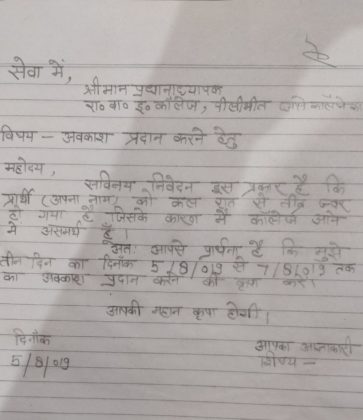 सेवा में,
श्रीमान प्रधानाध्यापक
रा० बा० इ० कॉलेज, पीलीभीत
विषय - अवकाश प्रदान करने हेतु
महोदय,
सविनय निवेदन इस प्रकार है कि
प्रार्थी (अपना नाम) को कल रात से तीव्र ज्वर
हो गया है जिसके कारण मैं कॉलेज आने
में असमर्थ हूँ।
अतः आपसे प्रार्थना है कि मुझे
तीन दिन का दिनाँक 5/8/019 से 7/8/019 तक
का अवकाश प्रदान करने की कृपा करें।
आपकी महान कृपा होगी।
दिनाँक
5/8/019
आपका आज्ञाकारी
शिष्य -